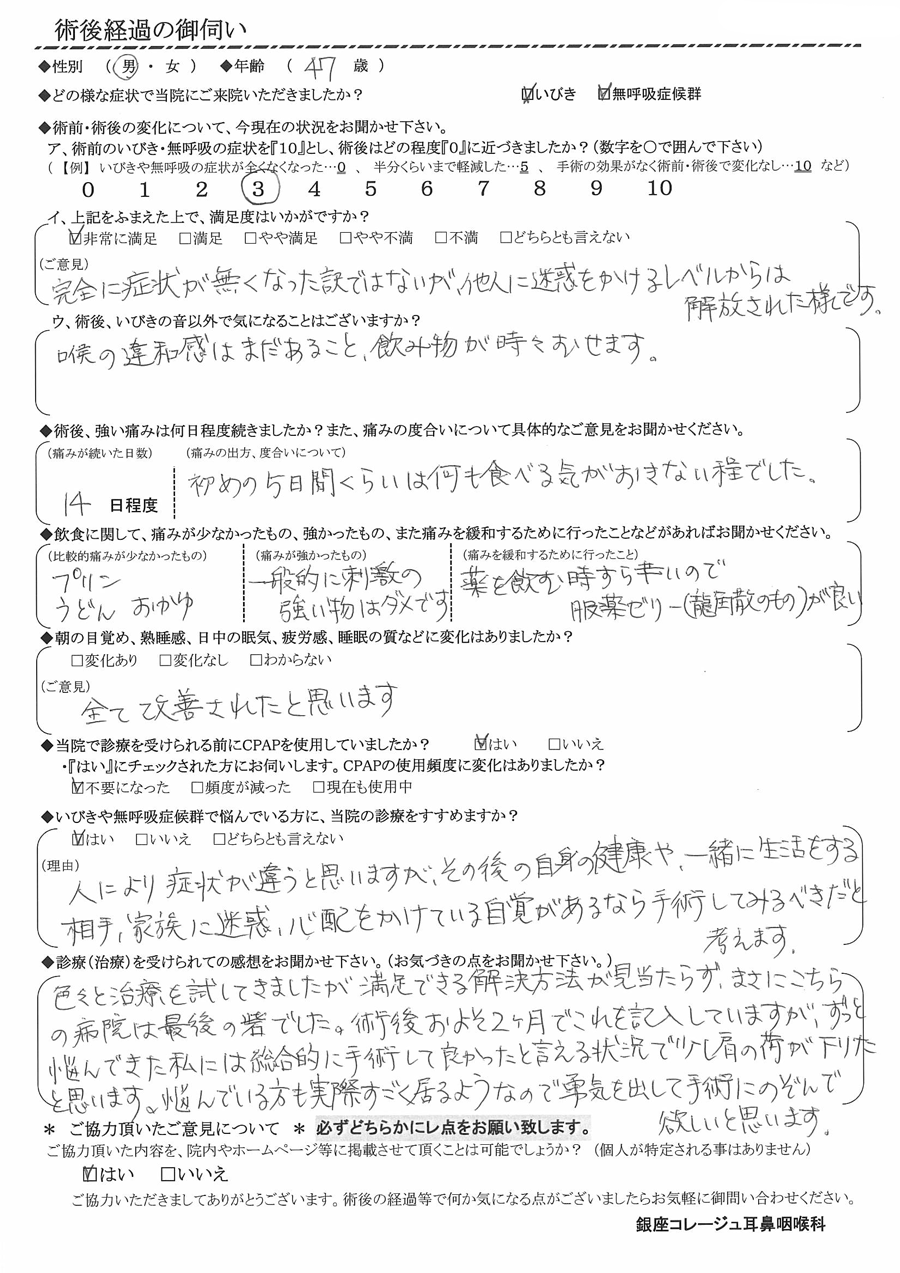 術後経過の御伺い
◆性別 (男・女) ◆年齢 (47歳)
◆どの様な症状で当院にご来院いただきましたか? ☑いびき ☑無呼吸症候群
◆術前・術後の変化について、今現在の状況をお聞かせ下さい。
ア、術前のいびき・無呼吸の症状を『10』とし、術後はどの程度『0』に近づきましたか?(数字を〇で囲んで下さい)
(【例】いびきや無呼吸の症状が全くなくなった…0 、 半分くらいまで軽減した…5 、 手術の効果がなく術前・術後で変化なし…10 など)
0 1 2 3 4 5 6 7 8 9 10
イ、上記をふまえた上で、満足度はいかがですか?
☑非常に満足 □満足 □やや満足 □やや不満 □不満 □どちらとも言えない
(ご意見)
完全に症状が無くなった訳ではないが、他人に迷惑をかけるレベルからは
解放された様です。
ウ、術後、いびきの音以外で気になることはございますか?
喉の違和感はまだあること、飲み物が時々むせます。
◆術後、強い痛みは何日程度続きましたか?また、痛みの度合いについて具体的なご意見をお聞かせください。
(痛みが続いた日数) (痛みの出方、度合いについて)
初めの5日間くらいは何も食べる気がおきない程でした。
14 日程度
◆飲食に関して、痛みが少なかったもの、強かったもの、また痛みを緩和するために行ったことなどがあればお聞かせください。
(比較的痛みが少なかったもの) (痛みが強かったもの) (痛みを緩和するために行ったこと)
プリン 一般的に刺激の 薬を飲む時すら辛いので
うどん おかゆ 強い物はダメです 服薬ゼリー(龍角散のもの)が良い
◆朝の目覚め、熟睡感、日中の眠気、疲労感、睡眠の質などに変化はありましたか?
□変化あり □変化なし □わからない
(ご意見)
全て改善されたと思います
◆当院で診療を受けられる前にCPAPを使用していましたか? ☑はい □いいえ
・『はい』にチェックされた方にお伺いします。CPAPの使用頻度に変化はありましたか?
☑不要になった □頻度が減った □現在も使用中
◆いびきや無呼吸症候群で悩んでいる方に、当院の診療をすすめますか?
☑はい □いいえ □どちらとも言えない
(理由)
人により症状が違うと思いますが、その後の自身の健康や、一緒に生活をする
相手、家族に迷惑、心配をかけている自覚があるなら手術してみるべきだと
考えます。
◆診療(治療)を受けられての感想をお聞かせ下さい。(お気づきの点をお聞かせ下さい。)
色々と治療を試してきましたが満足できる解決方法が見当たらず、まさにこちら
の病院は最後の砦でした。術後およそ2ヶ月でこれを記入していますが、ずっと
悩んできた私には総合的に手術して良かったと言える状況で少し肩の荷が下りた
と思います。悩んでいる方も実際すごく居るようなので勇気を出して手術にのぞんで
欲しいと思います。
* ご協力頂いたご意見について * 必ずどちらかにレ点をお願い致します。
ご協力頂いた内容を、院内やホームページ等に掲載させて頂くことは可能でしょうか? (個人が特定される事はありません)
☑はい □いいえ
ご協力いただきましてありがとうございます。術後の経過等で何か気になる点がございましたらお気軽に御問い合わせください。
銀座コレージュ耳鼻咽喉科